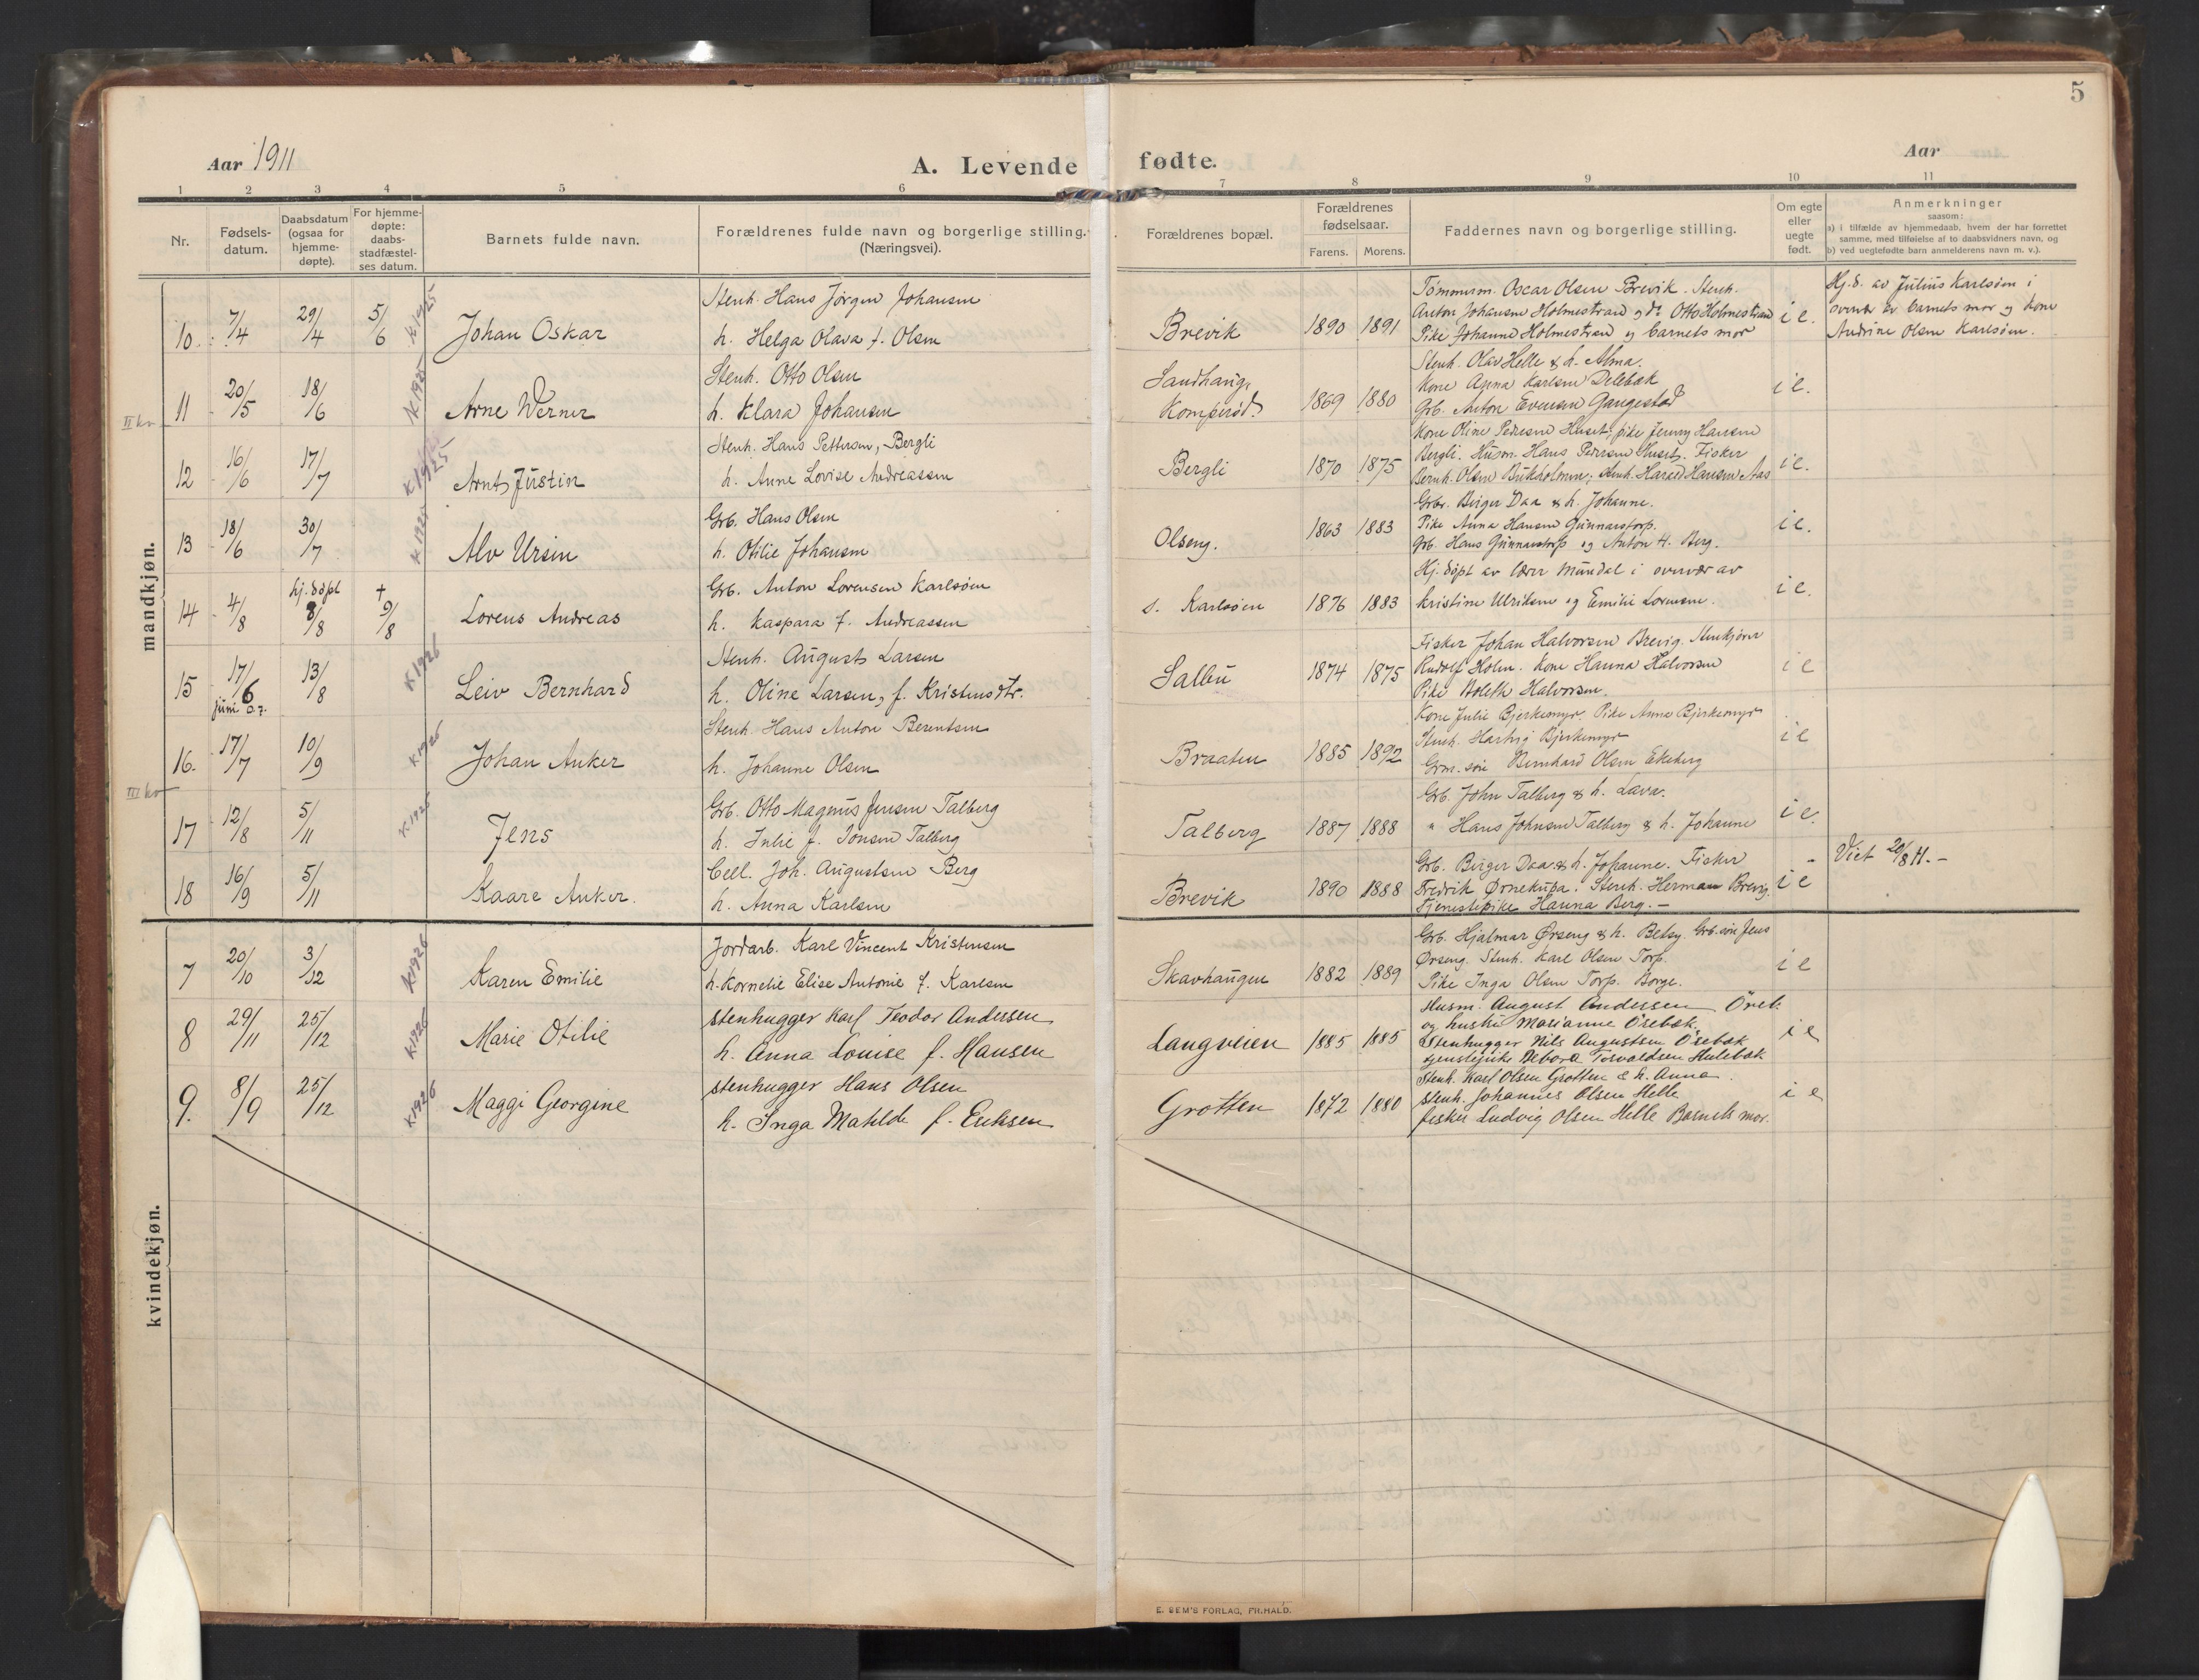 5
Aar 1911
A. Levende fødte.
Aar
1 2 3 4 5 6 7 8 9 10 11
Nr.
Fødsels-
datum.
Daabsdatum
(ogsaa for
hjemme-
døpte).
For hjemme-
døpte:
daabs-
stadfæstel-
ses datum.
Barnets fulde navn.
Forældrenes fulde navn og borgerlige stilling.
(Næringsvei).
Forældrenes bopæl.
Forældrenes
fødselsaar.
Farens. Morens.
Faddernes navn og borgerlige stilling.
Om egte
eller
uegte
født.
Anmerkninger
saasom:
a) i tilfælde av hjemmedaab, hvem der har forrettet
samme, med tilføielse af to daabsvidners navn, og
b) ved uegtefødte barn anmelderens navn m. v.).
mandkjøn.
10. 7/4 29/4 5/6 K1925 Johan Oskar
Stenh. Hans Jörgen Johansen
h. Helga Olava f. Olsen
Brevik 1890 1891
Tömmerm. Oscar Olsen Brevik. Stenh.
Anton Johansen Holmestrand og do Otto Holmestrand
Pike Johanne Holmestrand og barnets mor
i e.
Hj.d. av Julius Karlsöen i
overvær av barnets mor og kone
Andrine Olsen Karlsöen.
11 20/5 18/6 K1925 Arne Werner
Stenh. Otto Olsen
h. Klara Johansen
Sandhaug,
Komperöd. 1869 1880
Stenh. Olav Helle & h. Alma.
Kone Anna Karlsen Delebæk
Grb. Anton Evensen Gangestad
i e.
II kv
12 16/6 17/7 K1925 Arnt Justin
Stenh. Hans Pettersen, Bergli
h. Anne Lovise Andreassen
Bergli 1870 1875
Kone Oline Pedersen Huset; pike Jenny Hansen
Bergli. Husm. Hans Petersen Huset. Fisker
Bernh. Olsen Birkholmen; stenh. Harald Hansen Aas
i e.
13 18/6 30/7 K1925 Alv Ursin
Grb. Hans Olsen
h. Otilie Johansen
Olseng. 1863 1883
Grbr. Birger Daa & h. Johanne.
Pike Anna Hansen Gunnarstorp.
Grb. Hans Gunnarstorp og Anton H. Berg.
i e.
14 4/8 hj. döpt 8/8 + 9/8 Lorens Andreas
Grb. Anton Lorensen Karlsöen
h. Kaspara f. Andreassen
s. Karlsöen 1876 1883
Hj. döpt av lærer Mundal i overvær av
Kristine Ulriksen og Emilie Lorensen.
i e.
15 17/6 juni 13/8 K1926 Leiv Bernhard
Stenh. August Larsen
h. Oline Larsen, f. Kristensdtr.
Salbu 1874 1875
Fisker Johan Halvorsen Brevig. Stenkjörer
Rudolf Holm. Kone Hanna Halvorsen
Pike Boleth Halvorsen.
i e
16. 17/7 10/9 K1926 Johan Anker
Stenh. Hans Anton Berentsen
h. Johanne Olsen
Braaten 1885 1892
Kone Julie Bjerkemyr. Pike Anna Bjerkemyr
Stenh. Hartvig Bjerkemyr
Grm. sön Bernhard Olsen Ekeberg
i e
III kv
17 12/8 5/11 K1926 Jens
Grb. Otto Magnus Jensen Talberg
h. Julie f. Jonsen Talberg
Talberg 1887 1888
Grb. John Talberg & h. Lava.
" Hans Johnsen Talberg & h. Johanne
i e.
18 16/9 5/11 Kaare Anker.
Cell. Joh. Augustsen Berg
h. Anna Karlsen
Brevik 1890 1888
Grb. Birger Daa & h. Johanne. Fisker
Fredrik Ørnekupa. Stenh. Herman Brevig.
Tjenestepike Hanna Berg. -
- i e
Viet 20/8 11. -
kvindekjøn.
7 20/10 3/12 K1926 Karen Emilie
Jordarb. Karl Vincent Kristensen
h. Kornelie Elise Antonie f. Karlsen
Skavhaugen 1882 1889
Grb. Hjalmar Ørseng & h. Betsy. Grb. sön Jens
Ørseng. Stenh. Karl Olsen Torp.
Pike Inga Olsen Torp. Borge.
i e
8 29/11 25/12 K1926 Marie Otilie
stenhugger Karl Teodor Andersen
h. Anna Louise f. Hansen
Langveien 1885 1885
Husm. August Andersen Öreb.
og hustru Marianne Örebæk.
Stenhugger Nils Augustsen Örebæk
tjenstepike Debora Torvaldsen Hulebæk
i e
9. 8/9 25/12 K1926 Maggi Georgine
stenhugger Hans Olsen
h. Inga Matilde f. Eriksen
Grotten 1872 1880
Stenh. Karl Olsen Grotten & h. Anna.
stenh. Johannes Olsen Helle
fisker Ludvig Olsen Helle Barnets mor.
i e
E. SEM'S FORLAG, FR.HALD.